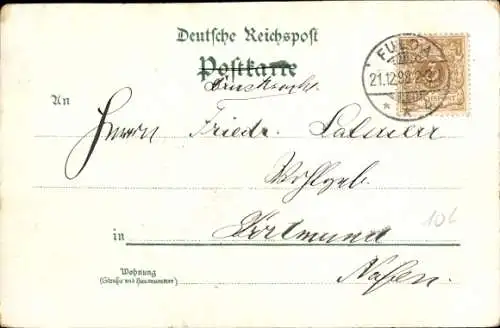 Deutsche Reichspost
Postkarte
Drucksache
FULDA
21.12.98.2-3
An
Herrn Friedr.
Wohlgeb.
in Dortmund
Hafen.
Wohnung
(Straße und Hausnummer)
106